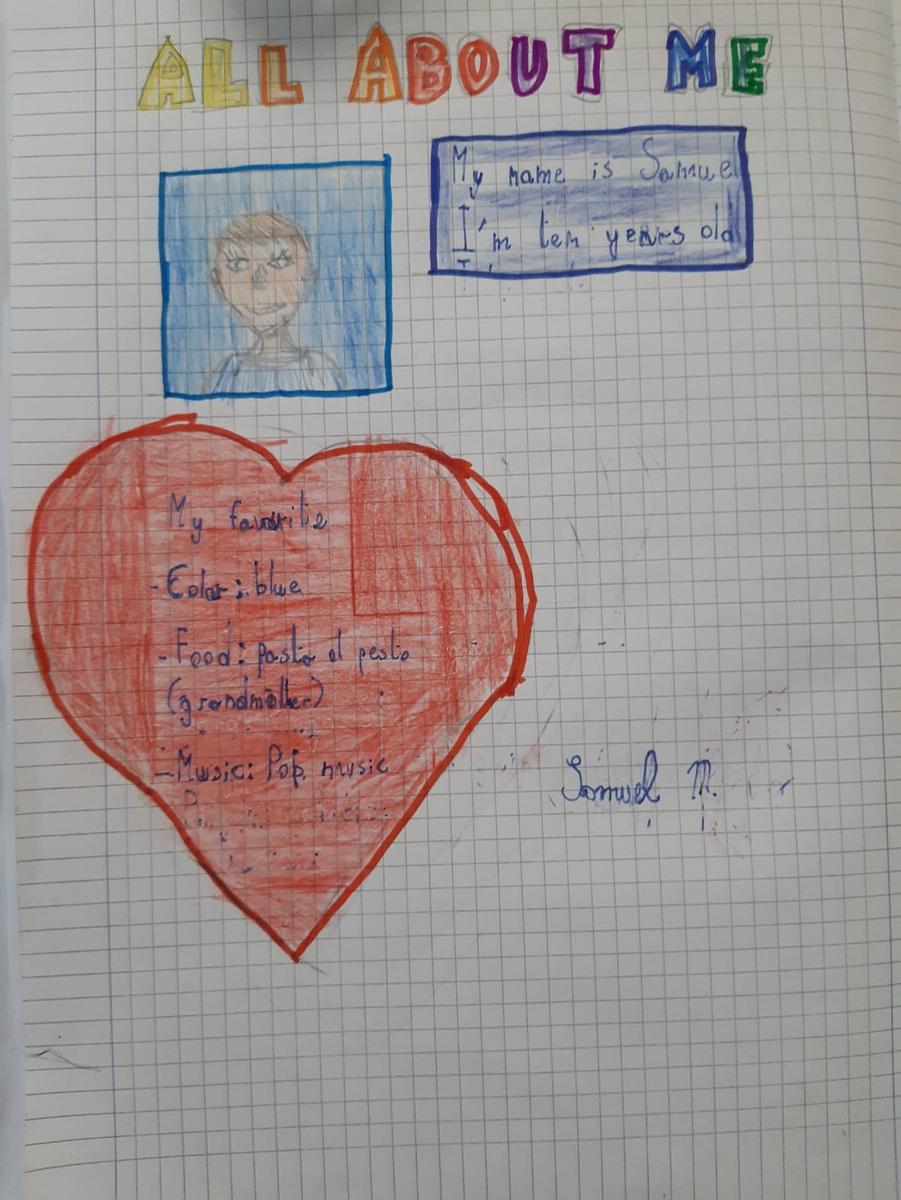 ALL ABOUT ME
My name is Samuel
I'm ten years old
My favorite
- Color: blue
- Food: pasta al pesto
(grandmother)
- Music: Pop music
Samuel M.